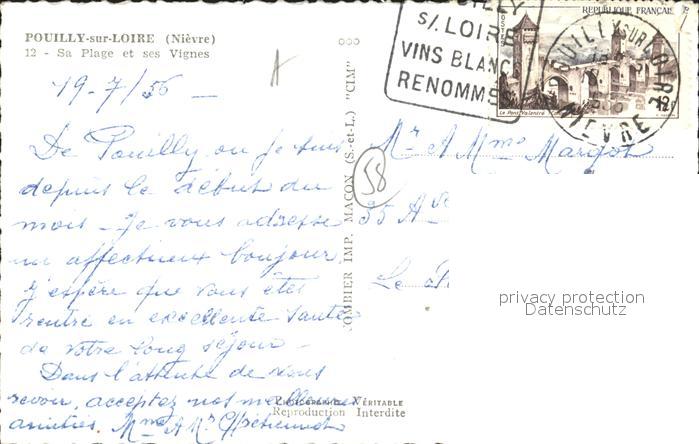 POUILLY-sur-LOIRE (Nièvre)
12 - Sa Plage et ses Vignes
19-7/56 -
De Pouilly ou je suis
depuis le début du
mois - Je vous adresse
un affectueux bonjour.
J'espère que vous êtes
rentré en excellente santé
de votre long séjour -
Dans l'attente de vous
revoir, acceptez nos meilleures
amitiés. Mme & Mr
PHOTOGRAPHIE VÉRITABLE
Reproduction Interdite
COMBIER IMP. MACON (S.-et-L.) "CIM"
S/. LOIRE
VINS BLANCS
RENOMMÉS
REPUBLIQUE FRANÇAISE
POSTES
12F
Le Pont Valentré
POUILLY SUR LOIRE
NIEVRE
A
58
Mr & Mme Margot
35 Av
Le
privacy protection
Datenschutz